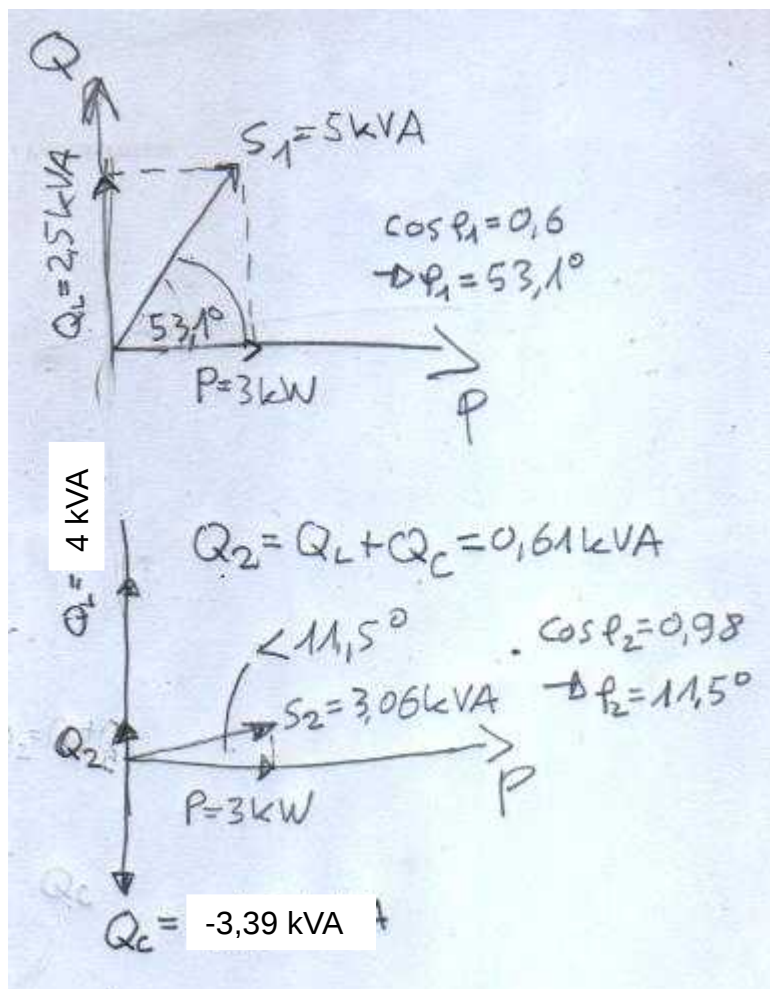 Q
S₁=5kVA
Q_L=2,5kVA
cos φ₁=0,6
→ φ₁=53,1°
53,1°
P=3kW
P
Q_L=4 kVA
Q₂=Q_L+Q_C=0,61kVA
<11,5°
cos φ₂=0,98
→ φ₂=11,5°
S₂=3,06kVA
Q₂
P=3kW
P
Qc
Q_C= -3,39 kVA